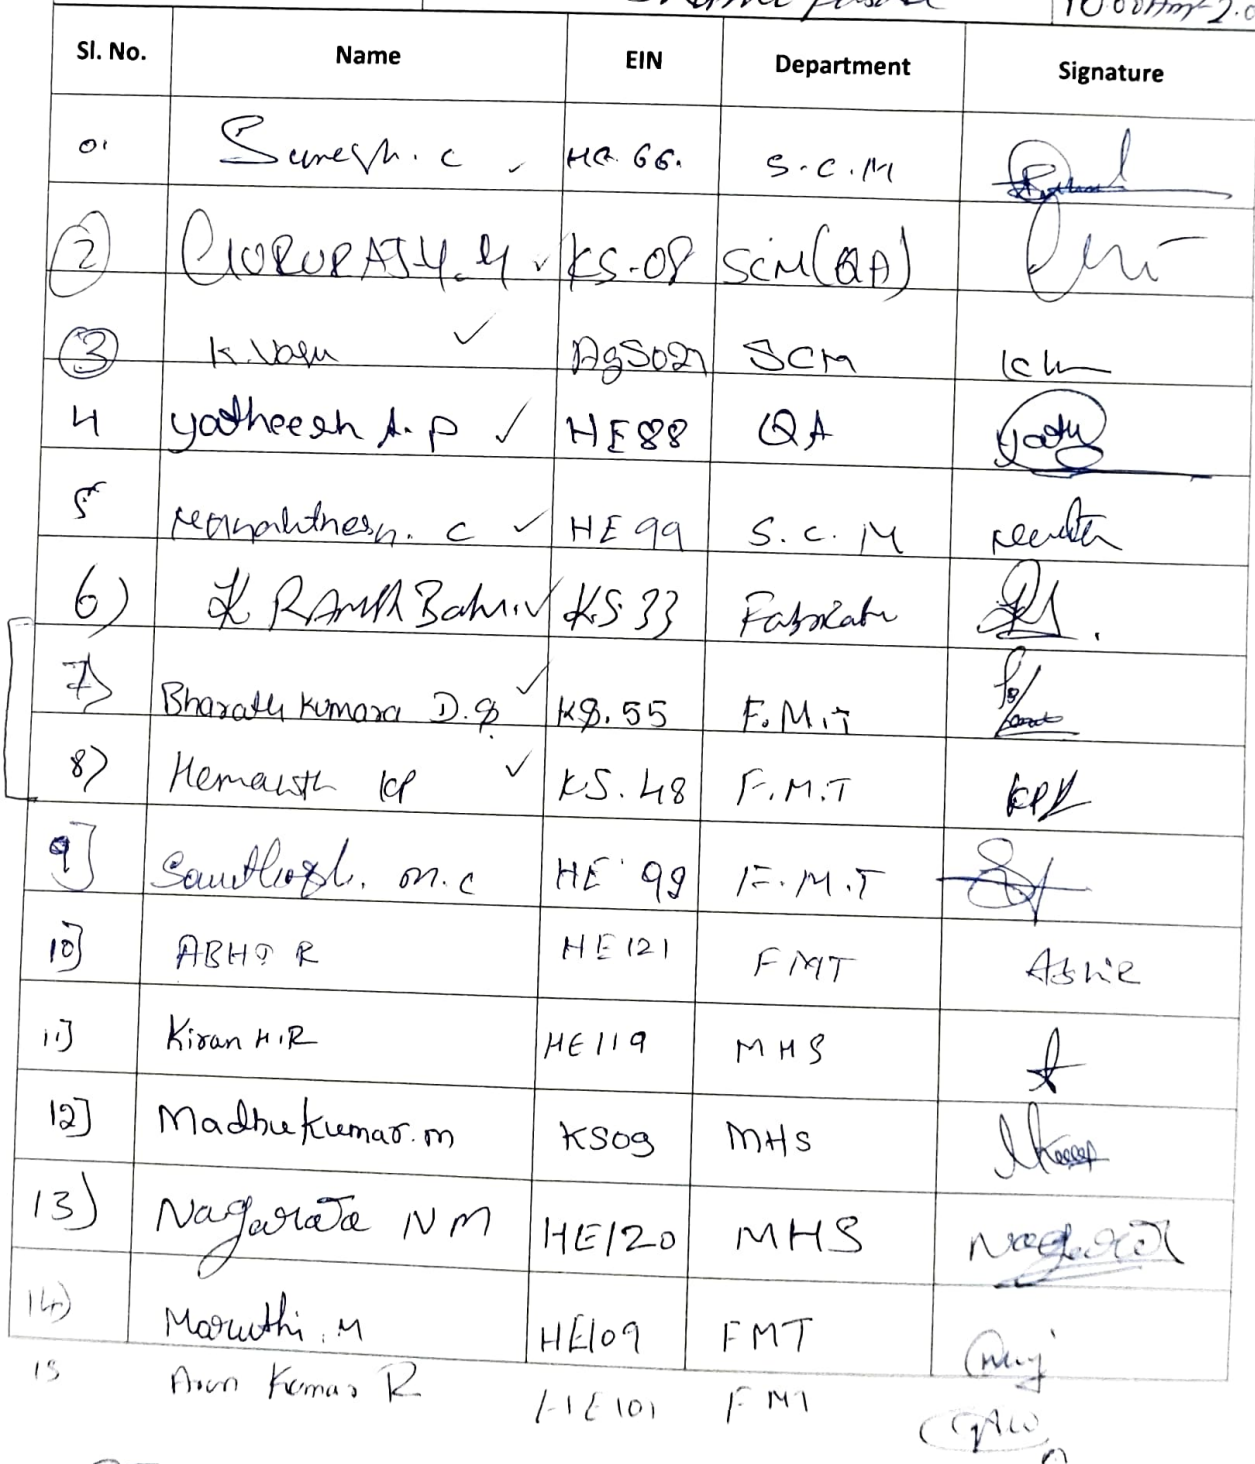 10:00Am-2.0
Sl. No. Name EIN Department Signature
01 Suresh. C HE 66. S.C.M
2 GURURAJ Y.M KS-08 SCM(QA)
3 K.Vasu SCM
4 yatheesh A.P HE88 QA yathi
5 C HE 99 S.C.M
6) K RAMA Babu.V KS 33
7) Bharath Kumara D.S KS.55 F.M.T
8) Hemanth KP KS.48 F.M.T KPH
9] Santhosh. M.C HE 99 F.M.T
10] ABHI R HE 121 FMT
11] Kiran H.R HE119 MHS
12] Madhu Kumar.m KS09 MHS
13) Nagaraja NM HE120 MHS Nagaraja
14) Maruthi.M HE109 FMT
15 Arun Kumar R HE101 FMT